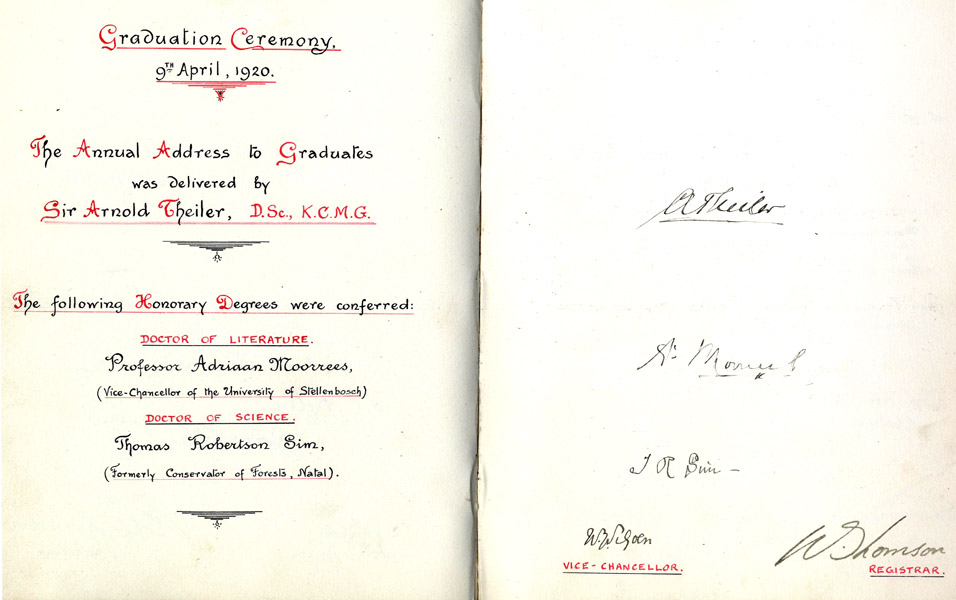 Graduation Ceremony.
9TH April, 1920.
The Annual Address to Graduates
was delivered by
Sir Arnold Theiler, D.Sc., K.C.M.G.
The following Honorary Degrees were conferred:
DOCTOR OF LITERATURE.
Professor Adriaan Moorrees,
(Vice-Chancellor of the University of Stellenbosch)
DOCTOR OF SCIENCE.
Thomas Robertson Sim,
(Formerly Conservator of Forests, Natal).
A Theiler
T R Sim -
VICE-CHANCELLOR.
W. Thomson
REGISTRAR.